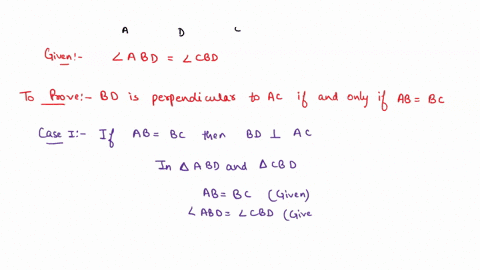 A D C
Given:- ∠ABD = ∠CBD
To Prove:- BD is perpendicular to AC if and only if AB = BC
Case I:- If AB = BC then BD ⊥ AC
In △ABD and △CBD
AB = BC (Given)
∠ABD = ∠CBD (Give